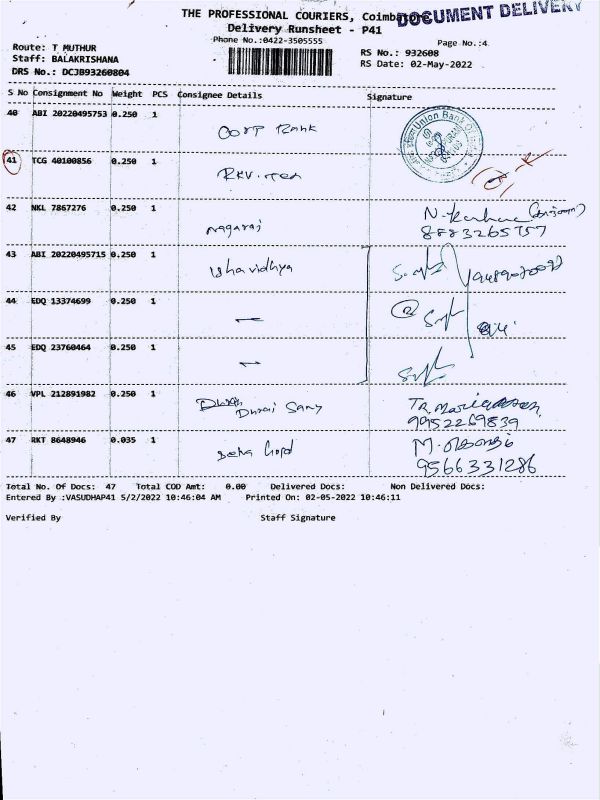 THE PROFESSIONAL COURIERS, Coimbatore
DOCUMENT DELIVERY
Delivery Runsheet - P41
Phone No.:0422-3505555
Page No.:4
Route: T MUTHUR
Staff: BALAKRISHANA
DRS No.: DCJB93260804
RS No.: 932608
RS Date: 02-May-2022
S No Consignment No Weight PCS Consignee Details Signature
40 ABI 20220495753 0.250 1
Corp Bank
Union Bank Of
41 TCG 40100856 0.250 1
42 NKL 7867276 0.250 1
Nagaraj
8883265757
43 ABI 20220495715 0.250 1
Isha vidhya
44 EDQ 13374699 0.250 1
45 EDQ 23760464 0.250 1
46 VPL 212891982 0.250 1
Durai Samy
9952269839
47 RKT 8648946 0.035 1
9566331286
Total No. Of Docs: 47 Total COD Amt: 0.00 Delivered Docs: Non Delivered Docs:
Entered By :VASUDHAP41 5/2/2022 10:46:04 AM Printed On: 02-05-2022 10:46:11
Verified By Staff Signature